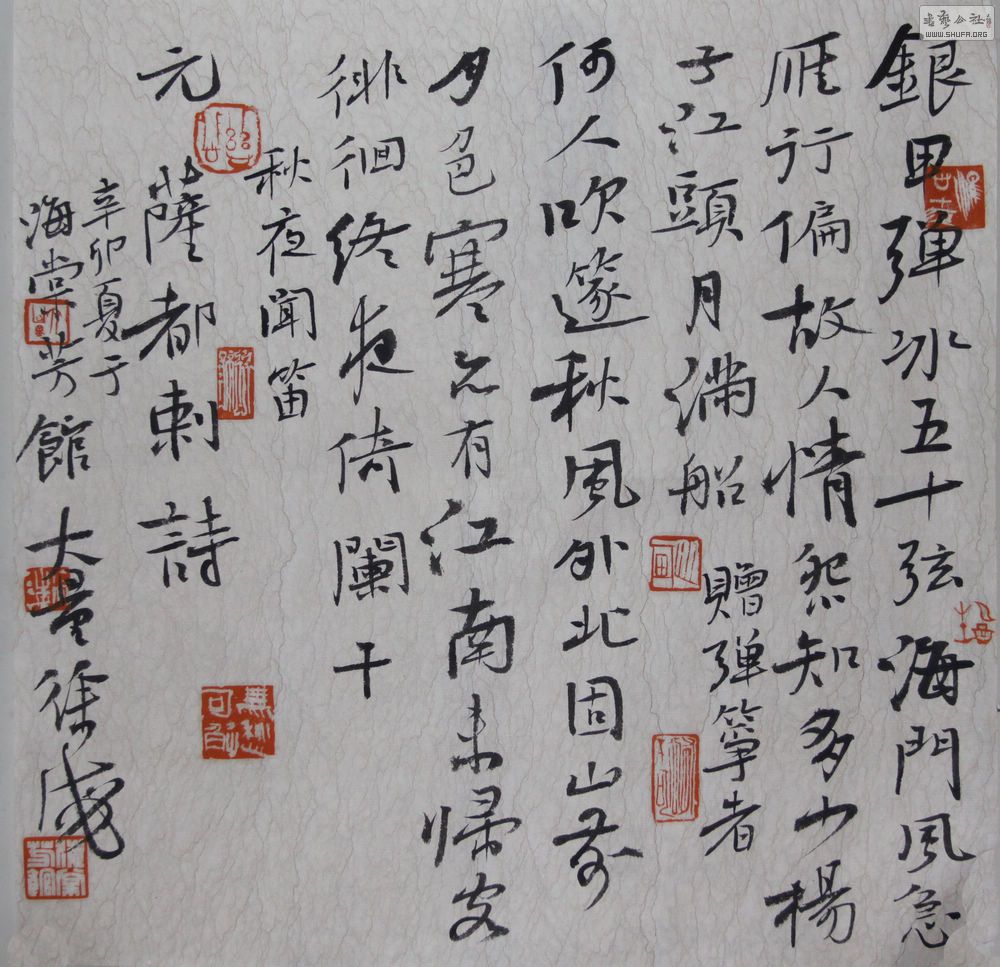 銀甲弹冰五十弦海門風急
雁行偏故人情怨知多少楊
子江頭月满船
贈弹箏者
何人吹篴秋風外北固山前
月色寒亦有江南未帰客
徘徊終夜倚闌干
秋夜聞笛
元薩都剌詩
辛卯夏于
海棠芳館大量徐
書藝公社
WWW.SHUFA.ORG